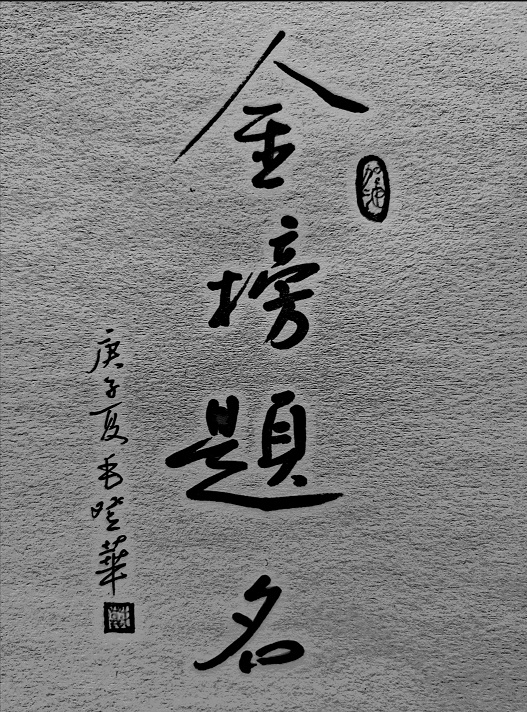 金榜題名
加油
庚子夏毛曉華